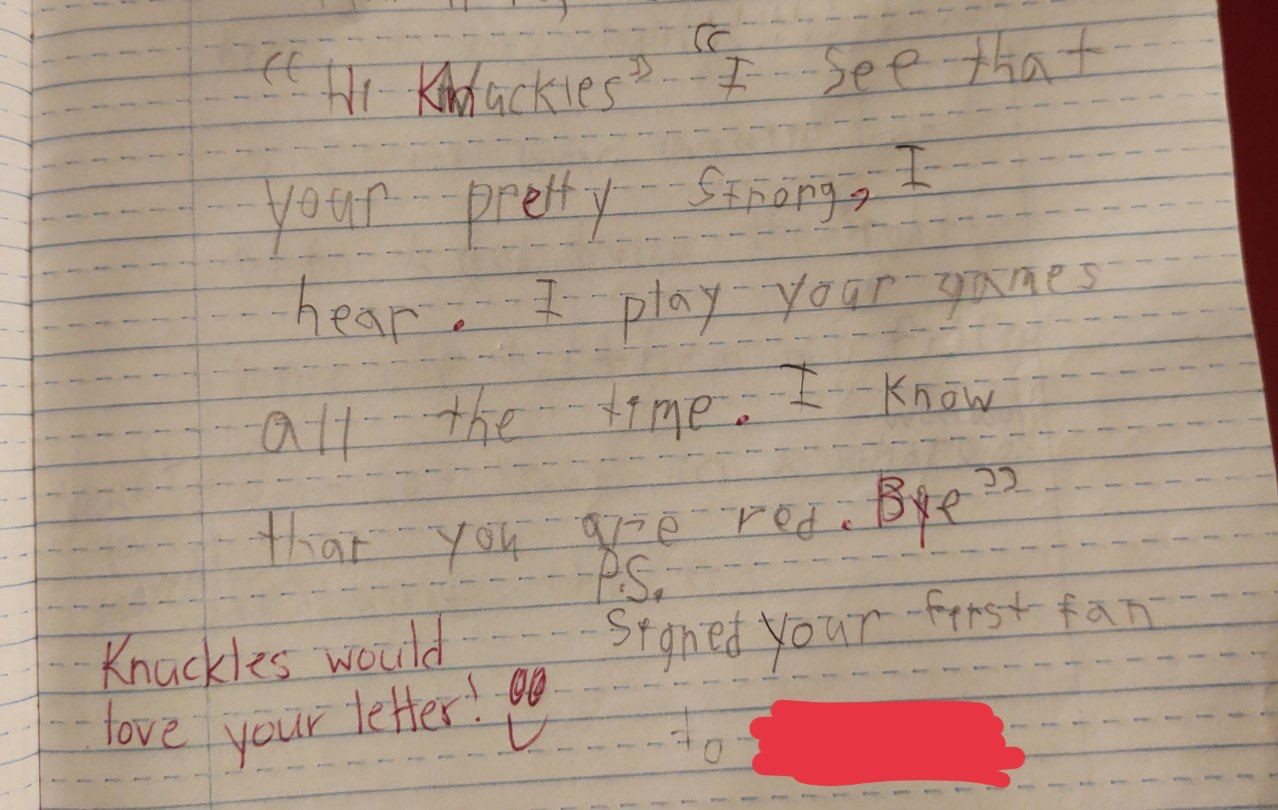 "Hi Knuckles" "I see that
your pretty strong, I
hear. I play your games
all the time. I know
that you are red. Bye"
P.S.
Signed your first fan
Knuckles would
love your letter!
to